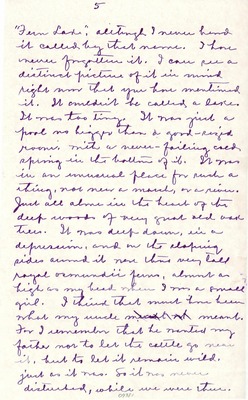 5
"Fern Lake", although I never heard
it called by that name. I have
never forgotten it. I can see a
distinct picture of it in mind
right now that you have mentioned
it. It couldn't be called a lake.
It was too tiny. It was just a
pool no bigger than a good-sized
room with a never-failing cold
spring in the bottom of it. It was
in an unusual place for such a
thing, not near a marsh, or a river.
Just all alone in the heart of the
deep woods of very great old oak
trees. It was deep down, in a
depression, and on the sloping
sides around it were this very tall
royal osmundii fern, almost as
high as my head when I was a small
girl. I think that must have been
what my uncle meant.
For I remember that he wanted my
father not to let the cattle go near
it, but to let it remain wild,
just as it was. So it was never
disturbed, while we were there.